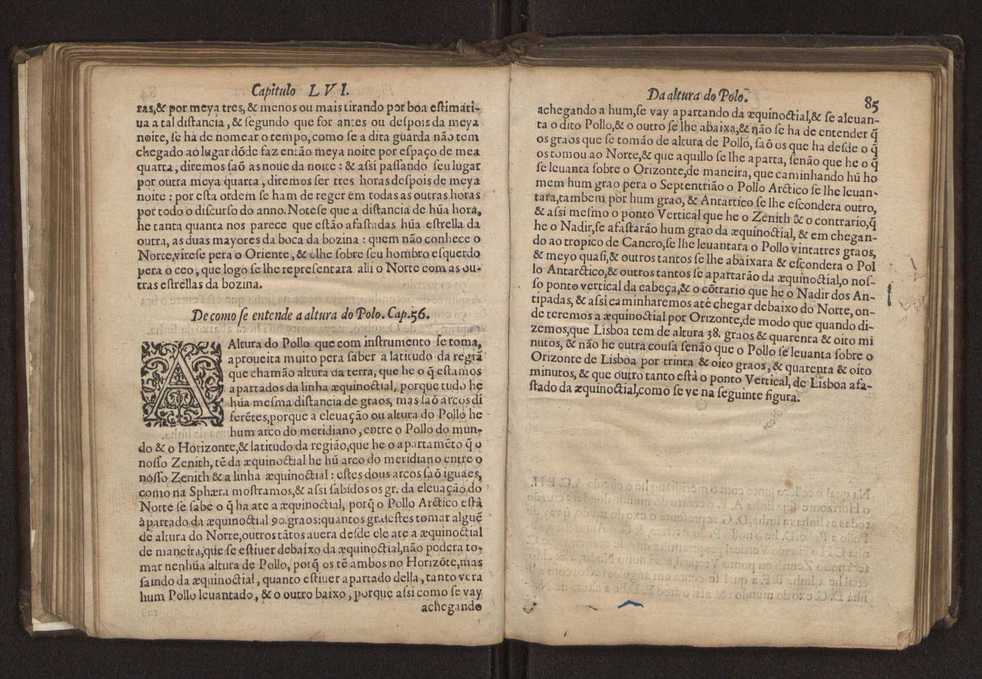 Capitulo LVI.
ras,& por meya tres,& menos ou mais tirando por boa estimati-
ua a tal distancia, & segundo que for antes ou despois da meya
noite, se ha de nomear o tempo, como se a dita guarda não tem
chegado ao lugar dōde faz então meya noite por espaço de mea
quarta, diremos saō as noue da noite: & assi passando seu lugar
por outra meya quarta, diremos ser tres horas despois de meya
noite: por esta ordem se ham de reger em todas as outras horas
por todo o discurso do anno. Notese que a distancia de hūa hora,
he tanta quanta nos parece que estão afastadas hūa estrella da
outra, as duas mayores da boca da bozina: quem não conhece o
Norte, virese pera o Oriente, & olhe sobre seu hombro esquerdo
pera o ceo, que logo se lhe representara alli o Norte com as ou-
tras estrellas da bozina.
De como se entende a altura do Polo. Cap. 56.
A Altura do Pollo que com instrumento se toma,
aproueita muito pera saber a latitudo da regiā
que chamão altura da terra, que he o q̄ estamos
apartados da linha æquinoctial, porque tudo he
hūa mesma distancia de graos, mas saō arcos di
ferētes, porque a eleuação ou altura do Pollo he
hum arco do meridiano, entre o Pollo do mun-
do & o Horizonte,& latitudo da região, que he o apartamēto q̄ o
nosso Zenith, tē da æquinoctial he hū arco do meridiano entre o
nosso Zenith & a linha æquinoctial: estes dous arcos saō iguaes,
como na Sphæra mostramos,& assi sabidos os gr. da eleuação do
Norte se sabe o q̄ ha ate a æquinoctial, porq̄ o Pollo Arctico està
apartado da æquinoctial 90. graos: quantos graos estes tomar alguē
de altura do Norte, outros tātos auera desde ele ate a æquinoctial
de maneira, que se estiuer debaixo da æquinoctial, não podera to-
mar nenhūa altura de Pollo, porq̄ os tē ambos no Horizōte, mas
saindo da æquinoctial, quanto estiuer apartado della, tanto vera
hum Pollo leuantado, & o outro baixo, porque assi como se vay
achegando
Da altura do Polo.
85
achegando a hum, se vay apartando da æquinoctial,& se aleuan-
ta o dito Pollo,& o outro se lhe abaixa,& não se ha de entender q̄
os graos que se tomão de altura de Pollo, saō os que ha desde o q̄
os tomou ao Norte,& que aquillo se lhe aparta, senão que he o q̄
se leuanta sobre o Orizonte, de maneira, que caminhando hū ho
mem hum grao pera o Septentrião o Pollo Arctico se lhe leuan-
tara, tambem por hum grao, & Antartico se lhe escondera outro,
& assi mesmo o ponto Vertical que he o Zenith & o contrario, q̄
he o Nadir, se afastarão hum grao da æquinoctial, & em chegan-
do ao tropico de Cancro, se lhe leuantara o Pollo vintatres graos,
& meyo quasi,& outros tantos se lhe abaixara & escondera o Pol
lo Antarctico,& outros tantos se apartarão da æquinoctial, o nos-
so ponto vertical da cabeça,& o cōtrario que he o Nadir dos An-
tipadas, & assi caminharemos até chegar debaixo do Norte, on-
de teremos a æquinoctial por Orizonte, de modo que quando di-
zemos, que Lisboa tem de altura 38. graos & quarenta & oito mi
nutos, & não he outra cousa senão que o Pollo se leuanta sobre o
Orizonte de Lisboa por trinta & oito graos, & quarenta & oito
minutos, & que outro tanto està o ponto Vertical, de Lisboa afa-
stado da æquinoctial, como se ve na seguinte figura.